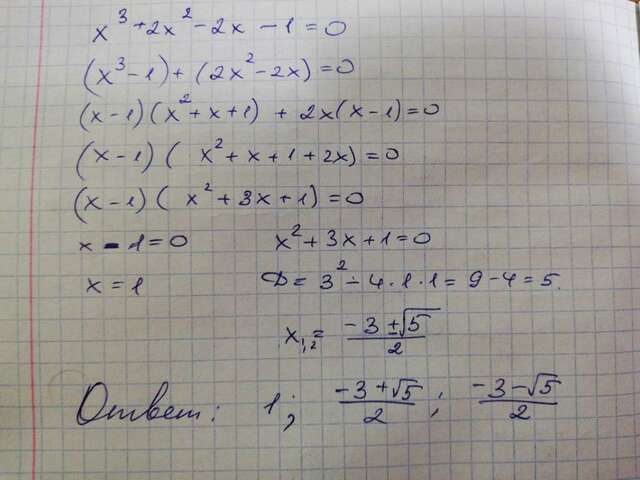 x³ + 2x² - 2x - 1 = 0
(x³ - 1) + (2x² - 2x) = 0
(x - 1)(x² + x + 1) + 2x(x - 1) = 0
(x - 1)( x² + x + 1 + 2x) = 0
(x - 1)( x² + 3x + 1) = 0
x - 1 = 0 x² + 3x + 1 = 0
x = 1 D = 3² - 4 · 1 · 1 = 9 - 4 = 5.
x₁,₂ = (-3 ± √5)/2
Ответ: 1; (-3 + √5)/2 ; (-3 - √5)/2